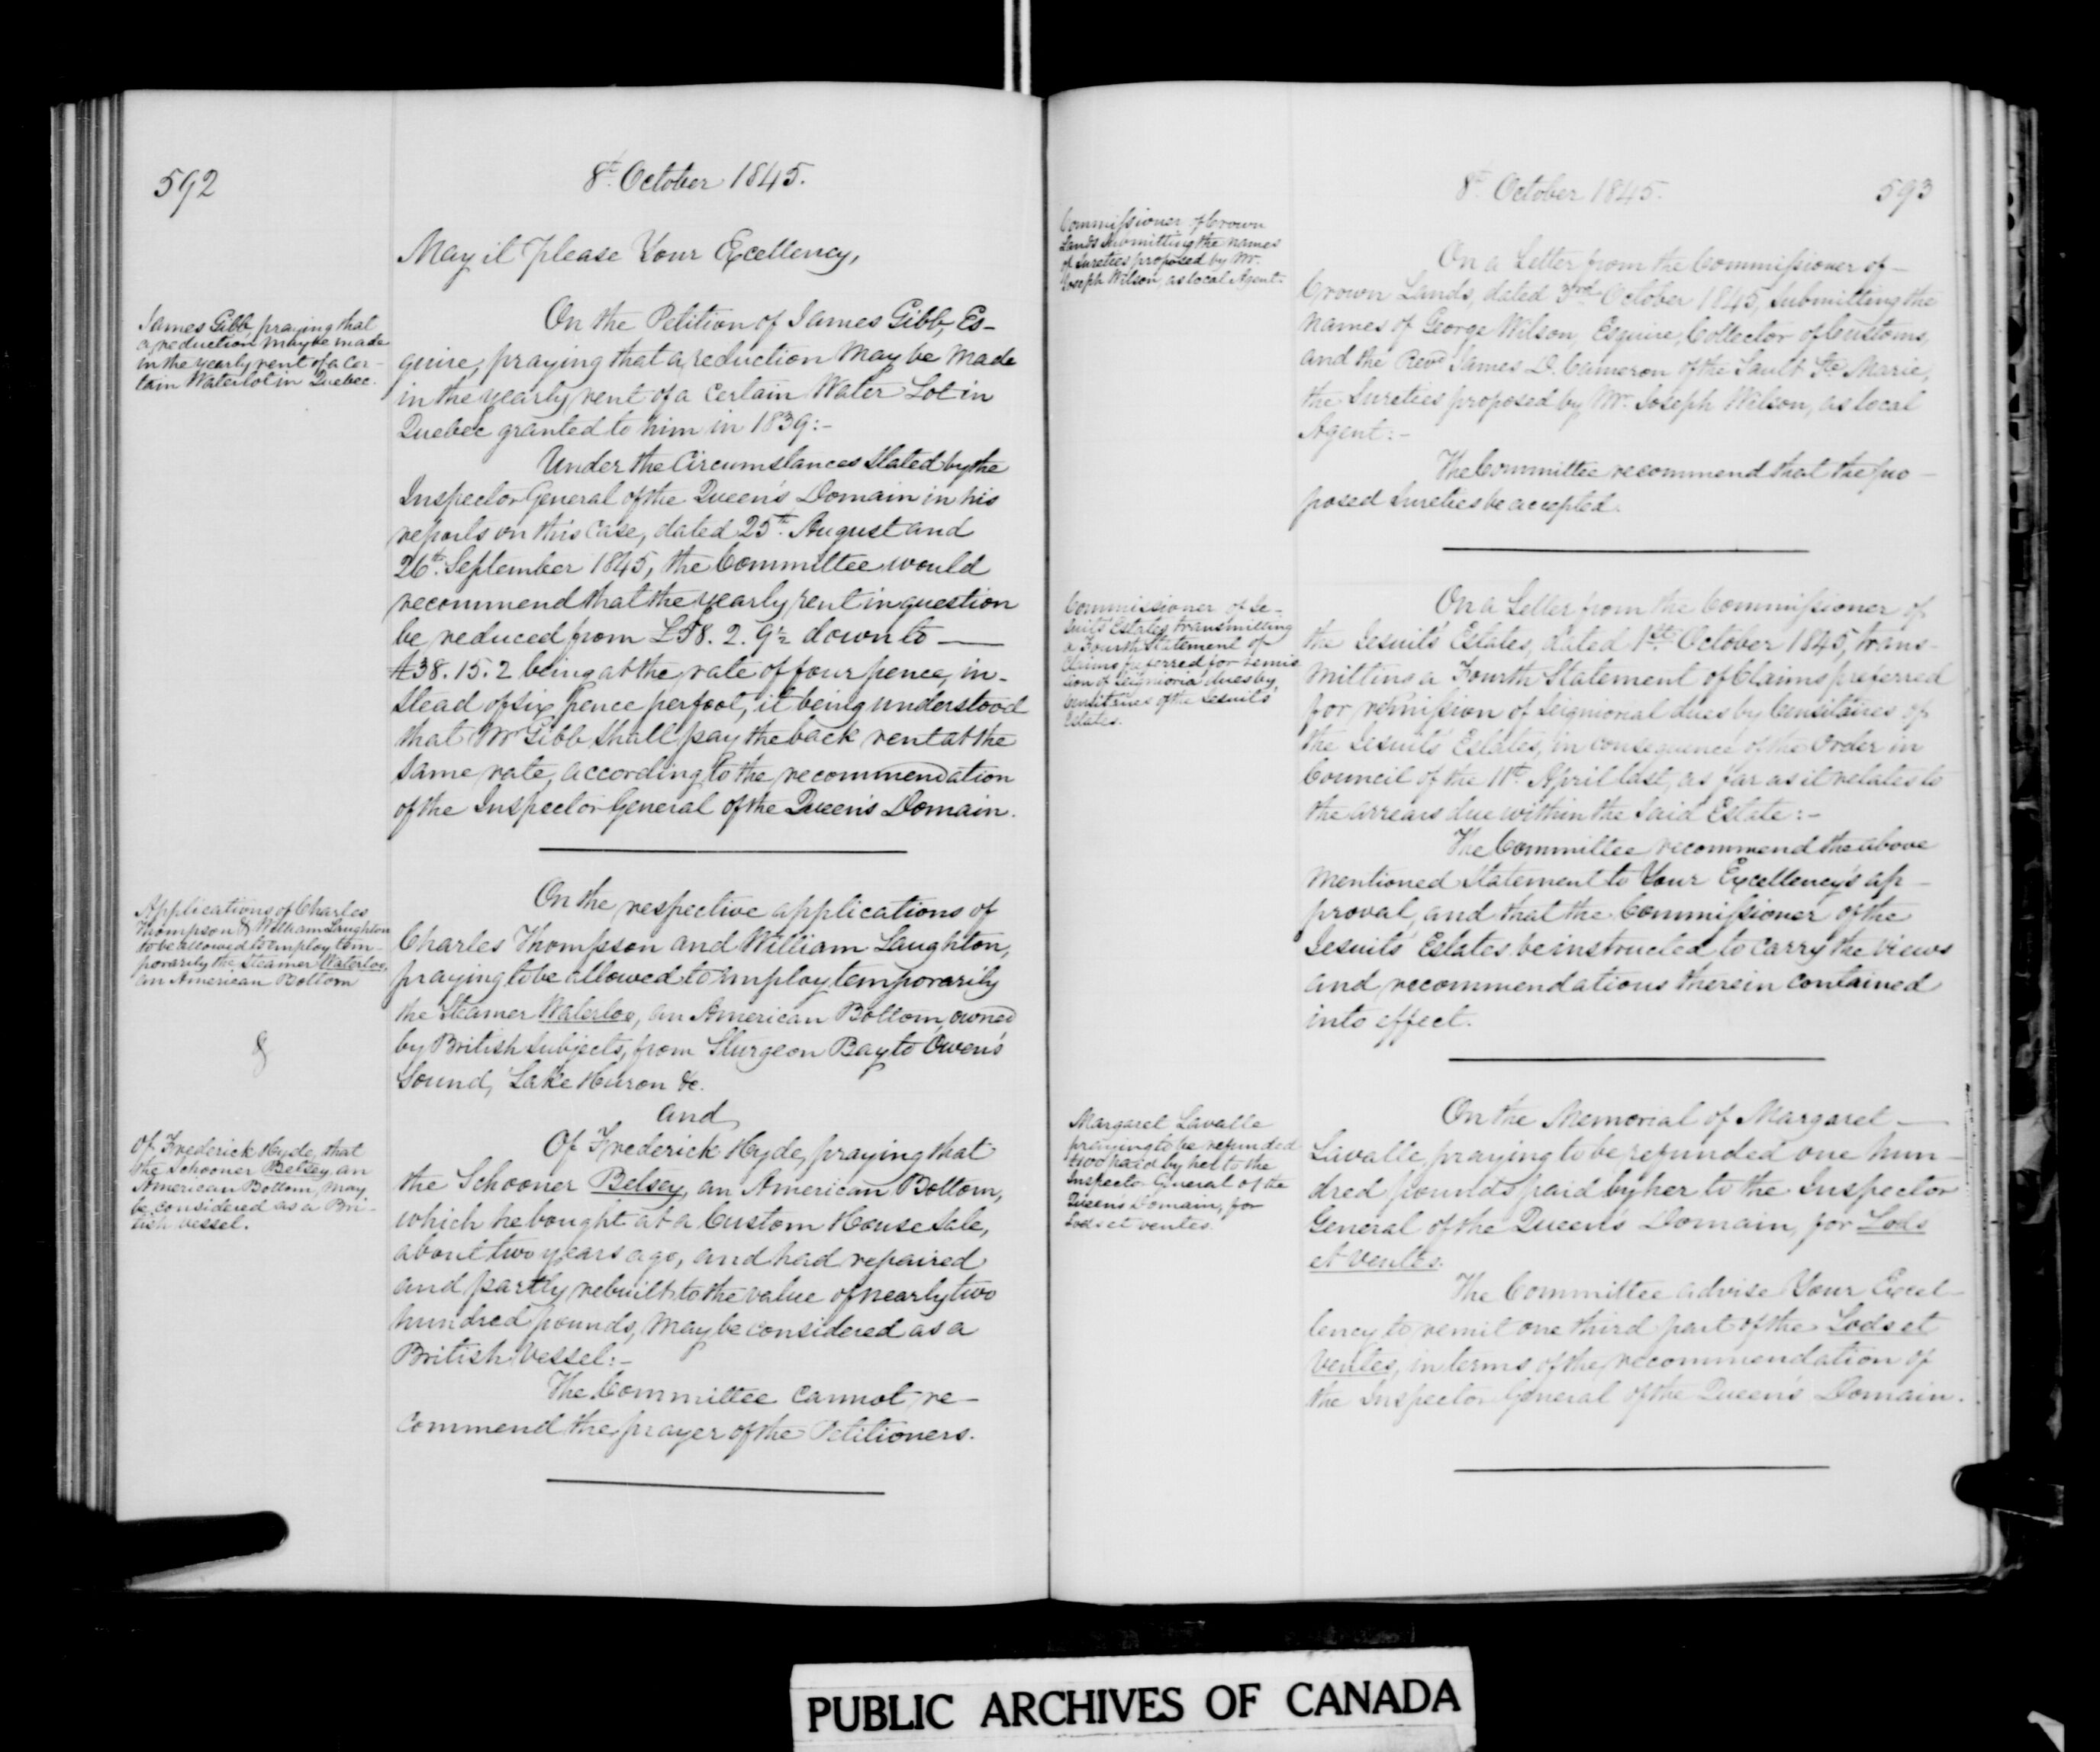 592
8t. October 1845.
May it Please Your Excellency,
James Gibb, praying that
a reduction may be made
in the yearly rent of a cer-
tain Waterlot in Quebec.
On the Petition of James Gibb, Es-
quire, praying that a reduction may be made
in the yearly rent of a certain Water Lot in
Quebec granted to him in 1839:-
Under the Circumstances stated by the
Inspector General of the Queen's Domain in his
reports on this case, dated 25th. August and
26th. September 1845, the Committee would
recommend that the yearly rent in question
be reduced from £58. 2. 9½ down to —
£38. 15. 2 being at the rate of four pence, in-
stead of six pence per foot, it being understood
that Mr Gibb shall pay the back rent at the
same rate, according to the recommendation
of the Inspector General of the Queen's Domain.
Applications of Charles
Thompson & William Laughton
to be allowed to employ tem-
porarily the Steamer Waterloo,
an American Bottom
&
On the respective applications of
Charles Thompson and William Laughton,
praying to be allowed to employ temporarily
the Steamer Waterloo, an American Bottom, owned
by British subjects, from Sturgeon Bay to Owen's
Sound, Lake Huron &c.
and
Of Frederick Hyde, that
the Schooner Betsey, an
American Bottom, may
be considered as a Bri-
tish vessel.
Of Frederick Hyde, praying that
the Schooner Betsey, an American Bottom,
which he bought at a Custom House Sale,
about two years ago, and had repaired
and partly rebuilt to the value of nearly two
hundred pounds, may be considered as a
British Vessel:-
The Committee cannot re-
commend the prayer of the Petitioners.
8t. October 1845.
593
Commissioner of Crown
Lands submitting the names
of Sureties proposed by Mr.
Joseph Wilson, as local Agent.
On a Letter from the Commissioner of —
Crown Lands, dated 3rd October 1845, submitting the
names of George Wilson, Esquire, Collector of Customs,
and the Revd James D. Cameron of the Sault Ste Marie,
the Sureties proposed by Mr. Joseph Wilson, as local
Agent:-
The Committee recommend that the pro-
posed Sureties be accepted.
Commissioner of Je-
suits Estates transmitting
a Fourth Statement of
Claims preferred for remis
sion of Seigniorial dues by
Censitaires of the Jesuits'
Estates.
On a Letter from the Commissioner of
the Jesuits' Estates, dated 1st. October 1845, trans-
mitting a Fourth Statement of Claims preferred
for remission of Seigniorial dues by Censitaires of
the Jesuits' Estates, in consequence of the Order in
Council of the 11t. April last, as far as it relates to
the arrears due within the said Estate:-
The Committee recommend the above
mentioned Statement to Your Excellency's ap-
proval, and that the Commissioner of the
Jesuits' Estates be instructed to carry the views
and recommendations therein contained
into effect.
Margaret Lavalle
praying to be refunded
£100 paid by her to the
Inspector General of the
Queen's Domain, for
Lods et ventes.
On the Memorial of Margaret —
Lavalle, praying to be refunded one hun-
dred pounds paid by her to the Inspector
General of the Queen's Domain, for Lods
et ventes.
The Committee advise Your Excel-
lency to remit one third part of the Lods et
Ventes, in terms of the recommendation of
the Inspector General of the Queen's Domain.
PUBLIC ARCHIVES OF CANADA